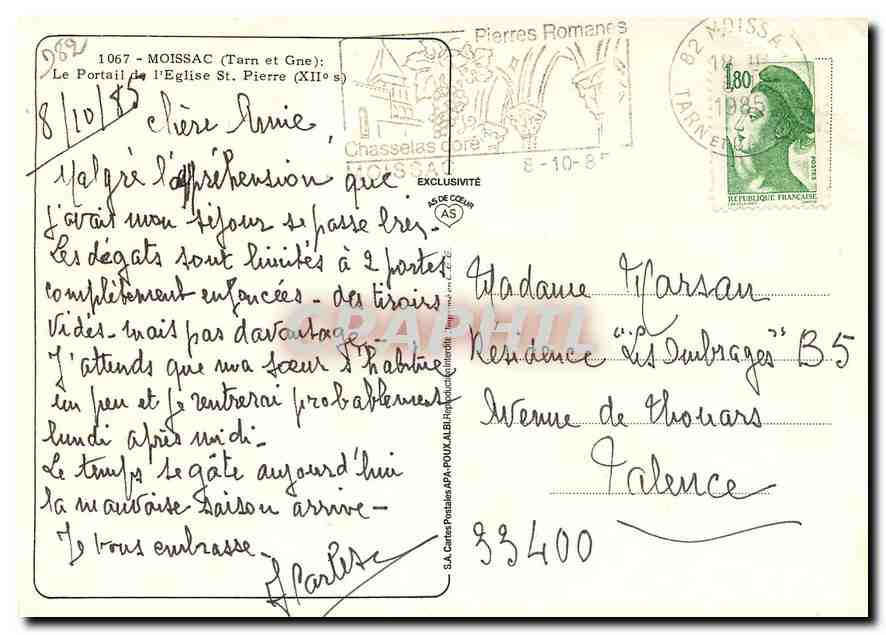 982
1067 - MOISSAC (Tarn et Gne):
Le Portail de l'Eglise St. Pierre (XIIº s)
8/10/85
Chère Annie,
Malgré l'appréhension que
j'avais mon séjour se passe bien.
Les dégats sont limités à 2 portes
complètement enfoncées - des tiroirs
vidés - mais pas davantage. -
J'attends que ma sœur s'habitue
un peu et je rentrerai probablement
lundi après midi -
Le temps se gâte aujourd'hui
la mauvaise saison arrive -
Je vous embrasse -
Pierres Romanes
Chasselas doré
MOISSAC 8-10-85
82 MOISSAC
1985
TARN ET G
1,80
POSTES
REPUBLIQUE FRANÇAISE
EXCLUSIVITÉ
AS DE CŒUR
AS
S.A. Cartes Postales APA-POUX, ALBI. Reproduction Interdite
CPAPHIL
Madame Marsan
Résidence "Les Ombrages" B5
Avenue de Thouars
Talence
33400